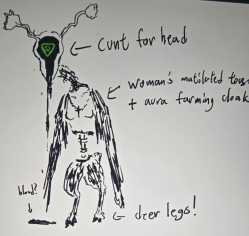 cunt for head
woman's mutilated torso
+ aura farming cloak
blood?
deer legs!